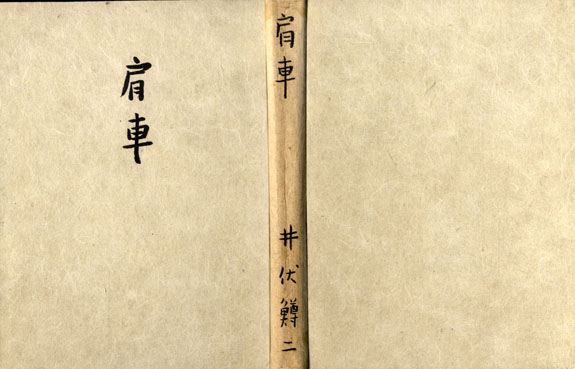 肩車
肩車
井伏鱒二